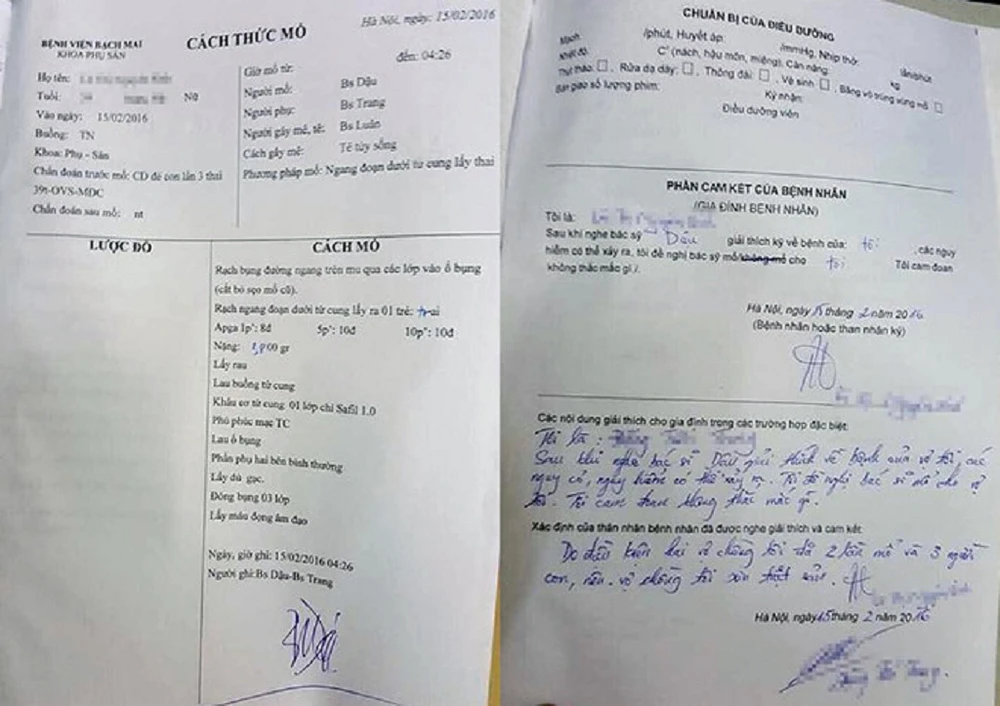 Hà Nội, ngày: 15/02/2016
BỆNH VIỆN BẠCH MAI
KHOA PHỤ SẢN
CÁCH THỨC MỔ
Họ tên:
Tuổi: Nữ
Vào ngày: 15/02/2016
Buồng: TN
Khoa: Phụ - Sản
Chẩn đoán trước mổ: CD đẻ con lần 3 thai
39t-OVS-MDC
Chẩn đoán sau mổ: nt
Giờ mổ từ: đến: 04:26
Người mổ: Bs Dậu
Người phụ: Bs Trang
Người gây mê, tê: Bs Luân
Cách gây mê: Tê tủy sống
Phương pháp mổ: Ngang đoạn dưới tử cung lấy thai
LƯỢC ĐỒ
CÁCH MỔ
Rạch bụng đường ngang trên mu qua các lớp vào ổ bụng
(cắt bỏ sẹo mổ cũ).
Rạch ngang đoạn dưới tử cung lấy ra 01 trẻ: trai
Apga 1p': 8đ 5p': 10đ 10p': 10đ
Nặng: 00 gr
Lấy rau
Lau buồng tử cung
Khâu cơ tử cung: 01 lớp chỉ Safil 1.0
Phủ phúc mạc TC
Lau ổ bụng
Phần phụ hai bên bình thường
Lấy đủ gạc.
Đóng bụng 03 lớp
Lấy máu đọng âm đạo
Ngày, giờ ghi: 15/02/2016 04:26
Người ghi:Bs Dậu-Bs Trang
CHUẨN BỊ CỦA ĐIỀU DƯỠNG
Mạch: /phút, Huyết áp: /mmHg, Nhịp thở: lần/phút
Nhiệt độ: C° (nách, hậu môn, miệng), Cân nặng: kg
Thụt tháo: , Rửa dạ dày: , Thông đái: , Vệ sinh , Băng vô trùng vùng mổ
Bàn giao số lượng phim: Ký nhận:
Điều dưỡng viên
PHẦN CAM KẾT CỦA BỆNH NHÂN
(GIA ĐÌNH BỆNH NHÂN)
Tôi là:
Sau khi nghe bác sỹ Dậu giải thích kỹ về bệnh của: tôi , các nguy
hiểm có thể xảy ra, tôi đề nghị bác sỹ mổ/không mổ cho tôi Tôi cam đoan
không thắc mắc gì./.
Hà Nội, ngày 15 tháng 2 năm 2016
(Bệnh nhân hoặc thân nhân ký)
Các nội dung giải thích cho gia đình trong các trường hợp đặc biệt:
Tôi là:
Sau khi nghe bác sĩ Dậu giải thích về bệnh của vợ tôi các
nguy cơ, nguy hiểm có thể xảy ra. Tôi đề nghị bác sĩ mổ cho vợ
tôi. Tôi cam đoan không thắc mắc gì.
Xác định của thân nhân bệnh nhân đã được nghe giải thích và cam kết:
Do điều kiện hai vợ chồng tôi đã 2 lần mổ và 3 người
con, nên vợ chồng tôi xin triệt sản.
Hà Nội, ngày 15 tháng 2 năm 2016